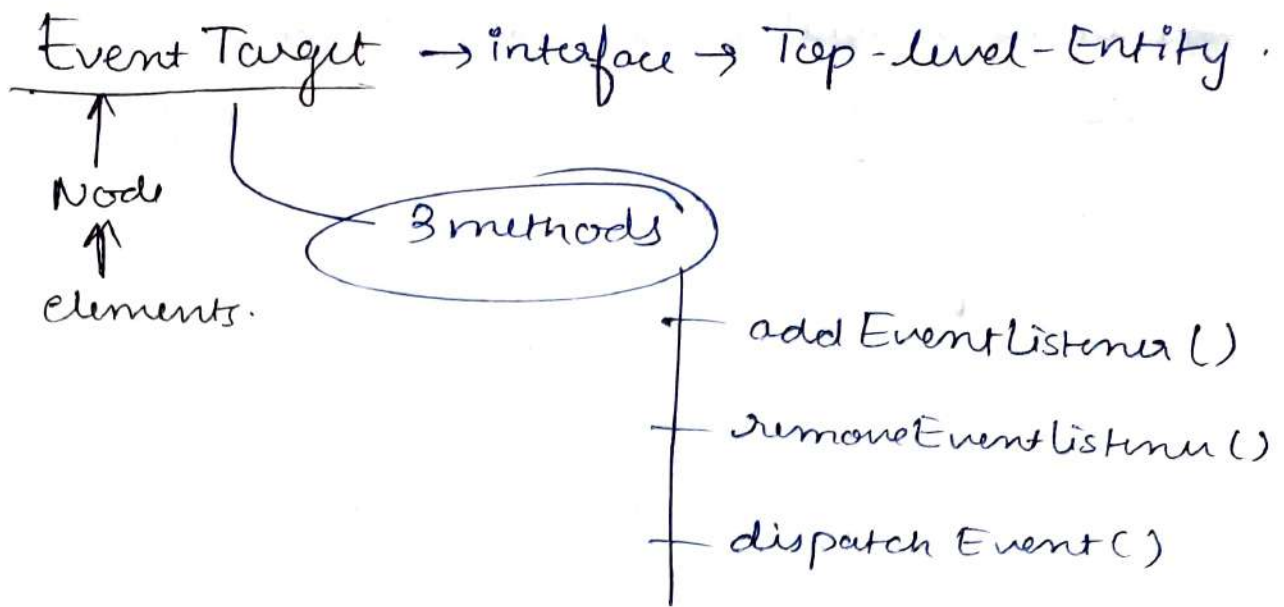 Event Target → interface → Top-level-Entity.
Node
3 methods
elements.
addEventListener()
removeEventListener()
dispatch Event()